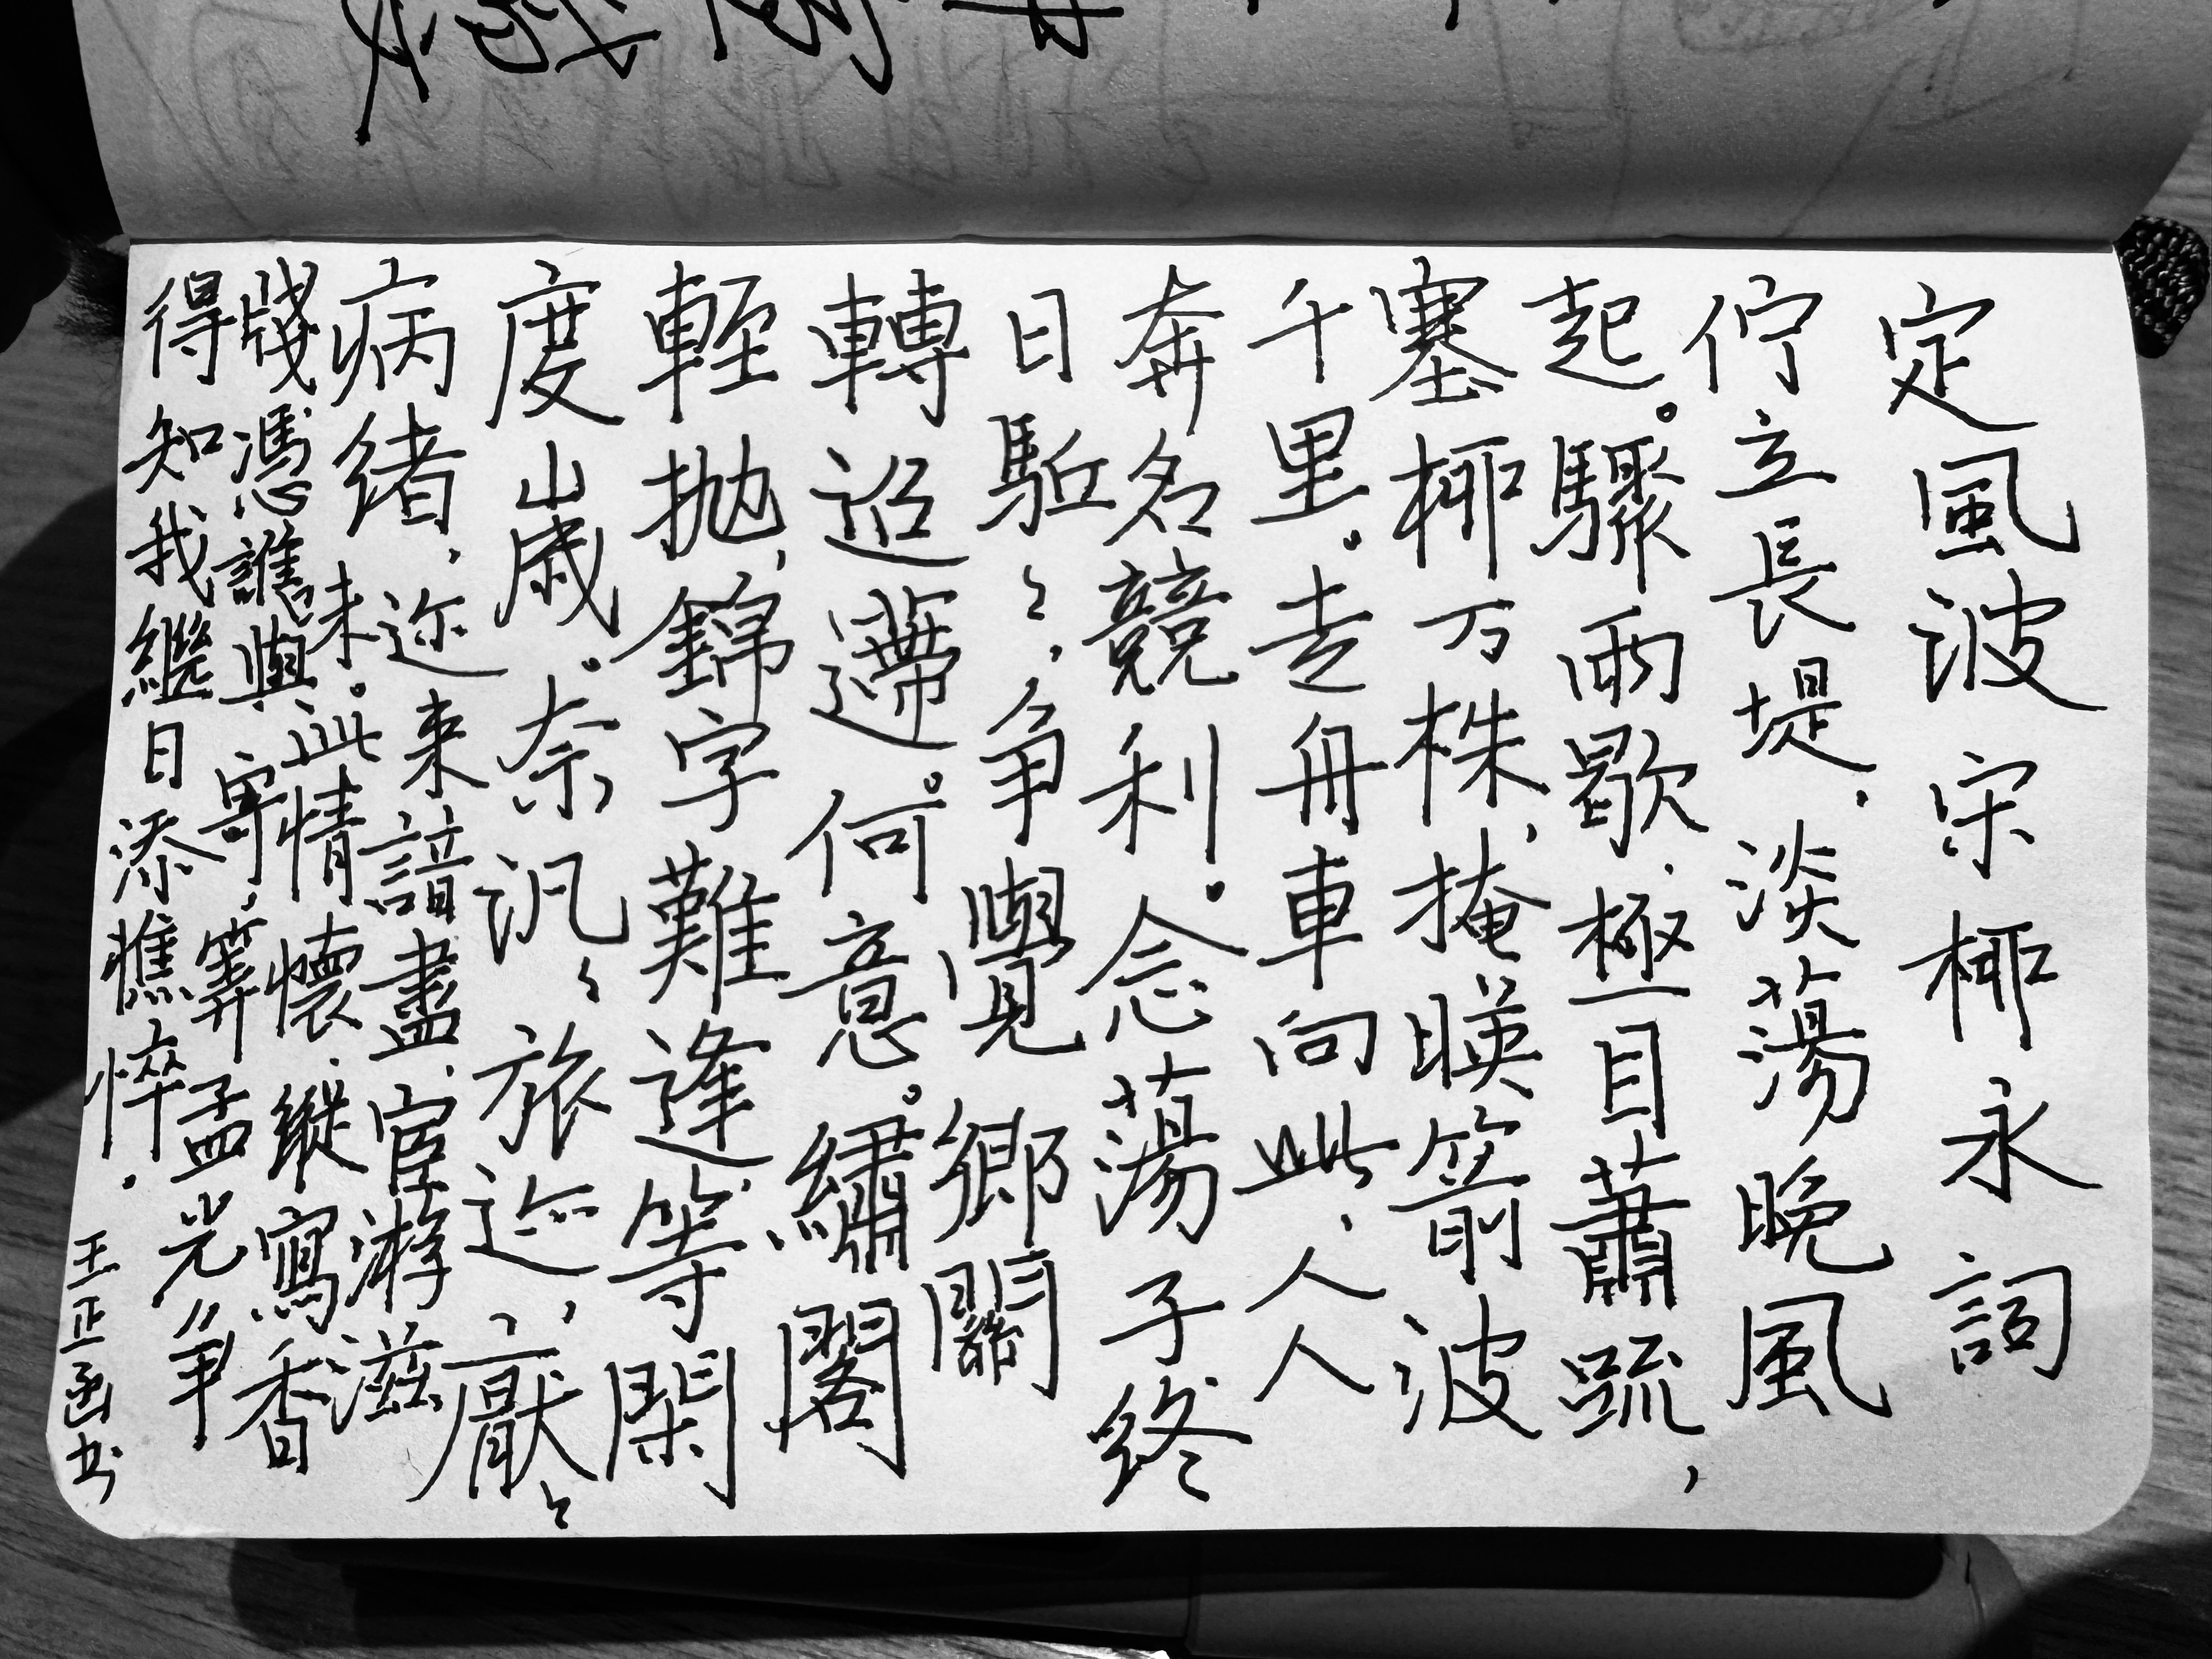 定風波 宋 柳永詞
佇立長堤，淡蕩晚風
起。驟雨歇，極目蕭疏，
塞柳万株，掩暎箭波
千里。走舟車向此，人人
奔名競利。念蕩子終
日駈々，争覺鄉關
轉迢遰。何意。繡閣
輕抛，錦字難逢，等閑
度歲。奈汎々旅迹，厭々
病緒，迩来諳盡，宦游滋
味。此情懷，縱寫香
牋憑誰與寄，算孟光争
得知我繼日添憔悴。 王正书